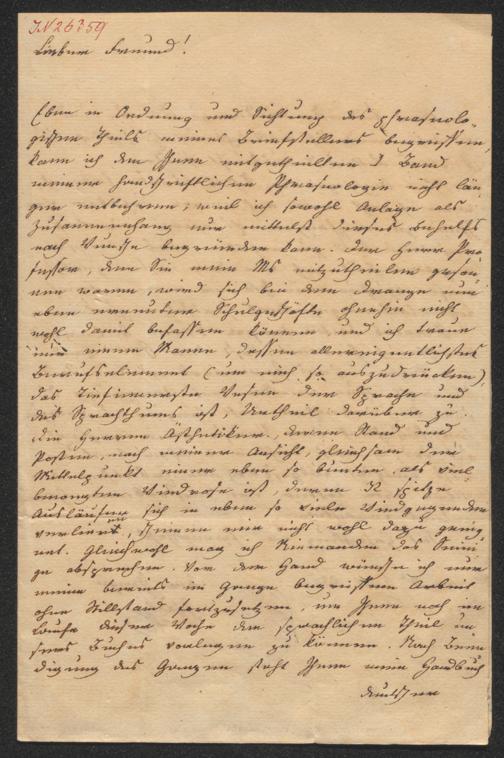 I.N. 26359
Lieber Freund!
Eben in Ordnung und Sichtung des phraseolo-
gischen Theils meines Briefstellers begriffen,
kann ich den Ihnen mitgetheilten I Band
meiner handschriftlichen Phraseologie nicht län-
ger entbehren; weil ich sowohl Anlage als
Zusammenhang nur mittelst dieses Behelfs
nach Wunsche begründen kann. Der Herr Pro-
fessor, dem Sie mein Ms mitzutheilen geson-
nen waren, wird sich bei dem Drange nun
eben erneuter Schulgeschäfte ohnehin nicht
wohl damit befassen können und ich traue
nur einem Manne, dessen allereigentlichstes
Berufselement (um mich so auszudrücken),
das tiefinnerste Wesen der Sprache und
des Sprachthums ist, Urtheil darüber zu.
Die Herren Ästhetiker, deren Stand und
Posten, nach meiner Ansicht, gleichsam der
Mittelpunkt einer eben so bunten, als viel
Windrose ist, deren 32 spitze
Ausläufer sich in eben so viele Windgegenden
verlieren, scheinen mir nicht wohl dazu geeig
net. Gleichwohl mag ich Niemanden das Seini
ge absprechen. Vor der Hand wünsche ich nur
meine bereits im Gange begriffene Arbeit
ohne Stillstand fortzusetzen, um Ihnen noch im
Laufe dieser Woche den sprachlichen Theil un
sers Buches vorlegen zu können. Nach Been
digung des Ganzen steht Ihnen mein Handbuch
deutscher